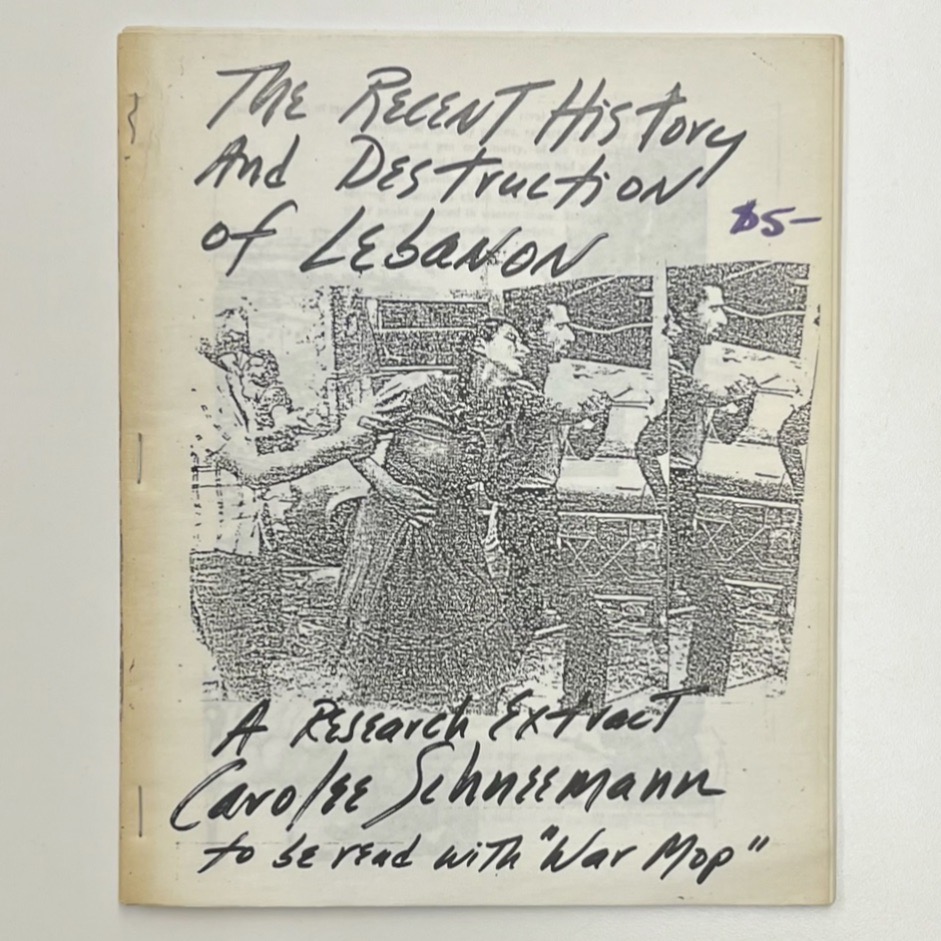 The Recent History
And Destruction
of Lebanon
$5-
A Research Extract
Carolee Schneemann
to be read with "War Mop"